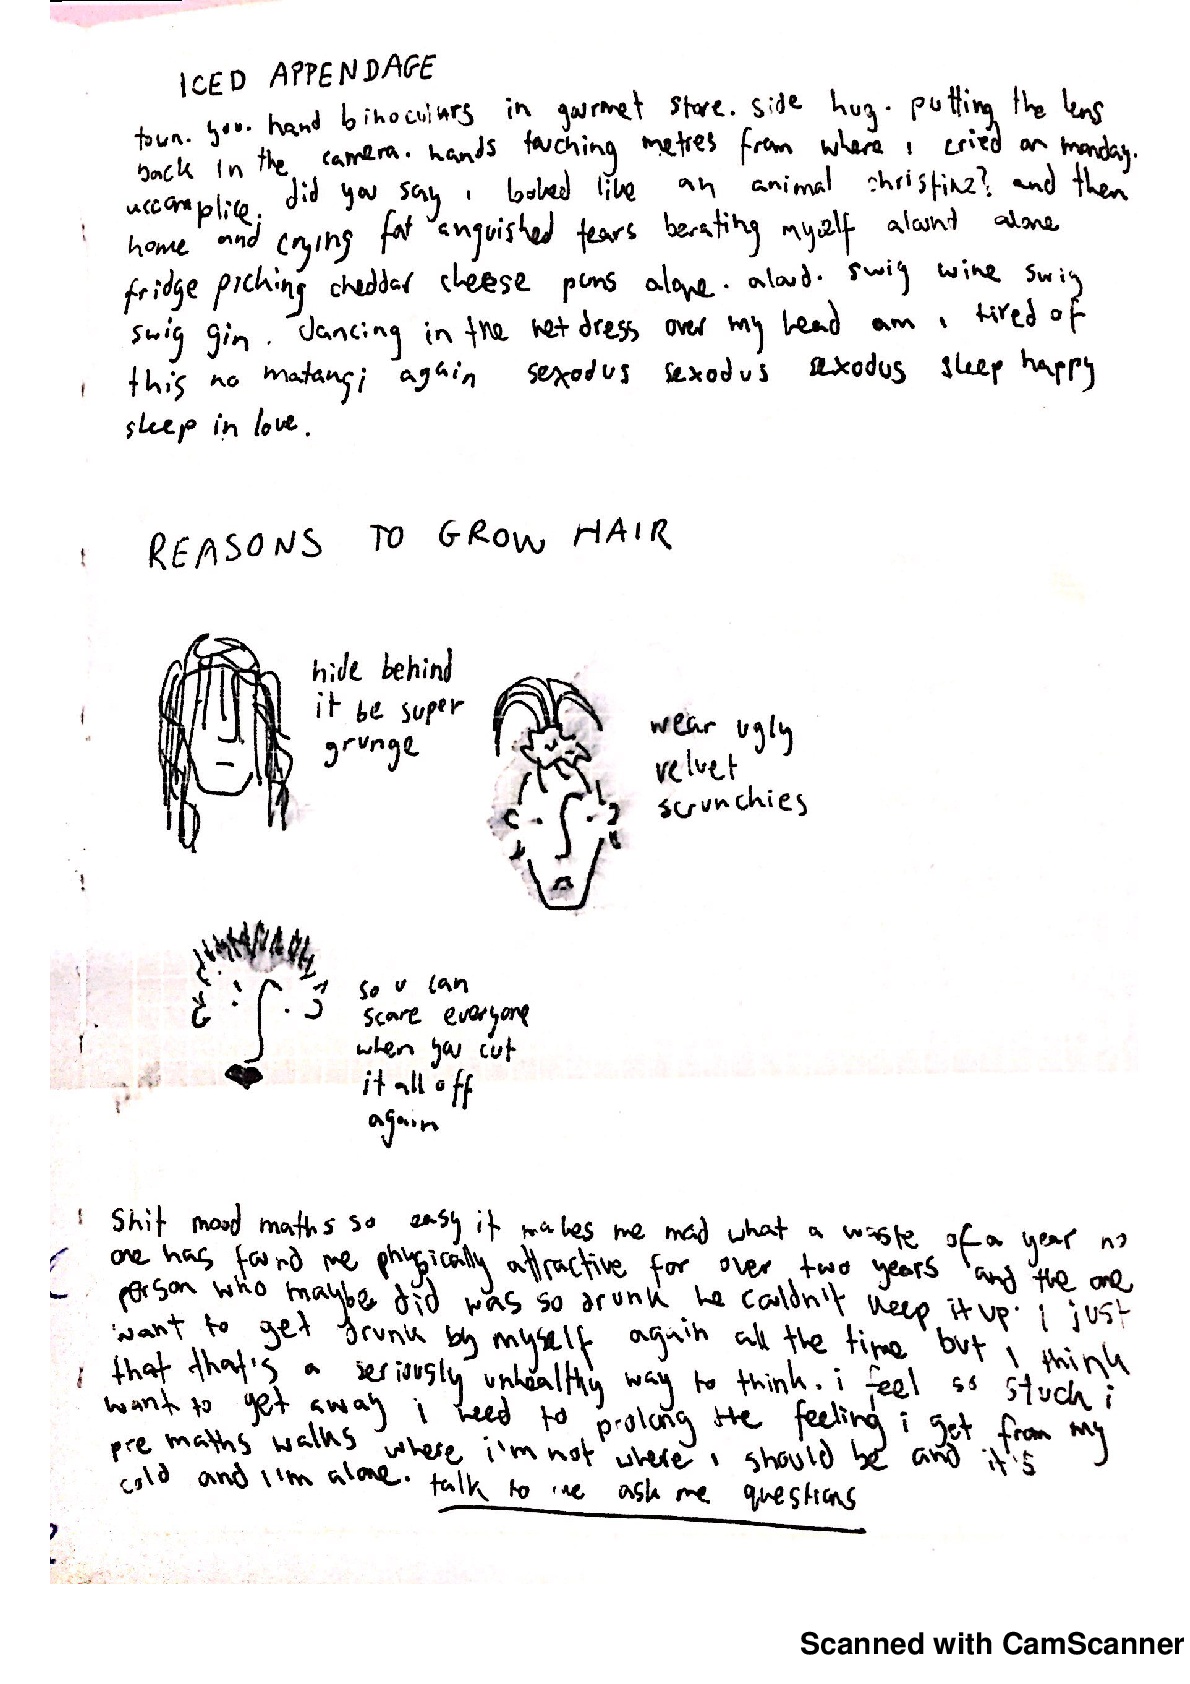 ICED APPENDAGE
town. you. hand binoculars in gourmet store. side hug. putting the lens
back in the camera. hands touching metres from where i cried on monday.
accomplice. did you say i looked like an animal christine? and then
home and crying fat anguished tears berating myself alount alone
fridge picking cheddar cheese puns alone. aloud. swig wine swig
swig gin. dancing in the net dress over my head am i tired of
this no matangi again sexodus sexodus sexodus sleep happy
sleep in love.
REASONS TO GROW HAIR
hide behind
it be super
grunge
wear ugly
velvet
scrunchies
so u can
scare everyone
when you cut
it all off
again
Shit mood maths so easy it makes me mad what a waste of a year no
one has found me physically attractive for over two years and the one
person who maybe did was so drunk he couldn't keep it up. i just
want to get drunk by myself again all the time but i think
that that's a seriously unhealthy way to think. i feel so stuck i
want to get away i need to prolong the feeling i get from my
pre maths walks where i'm not where i should be and it's
cold and i'm alone. talk to me ask me questions
Scanned with CamScanner